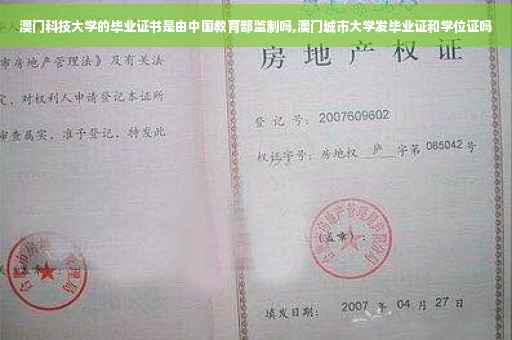 澳门科技大学的毕业证书是由中国教育部监制吗,澳门城市大学发毕业证和学位证吗
市房地产管理法》及有关法
定，对权利人申请登记本证所
审查属实，准予登记，特发此
房地产权
登记号：2007609602
权证字号：房地权 庐 字第 085042 号
(盖章)：
填发日期： 2007 年 04 月 27 日